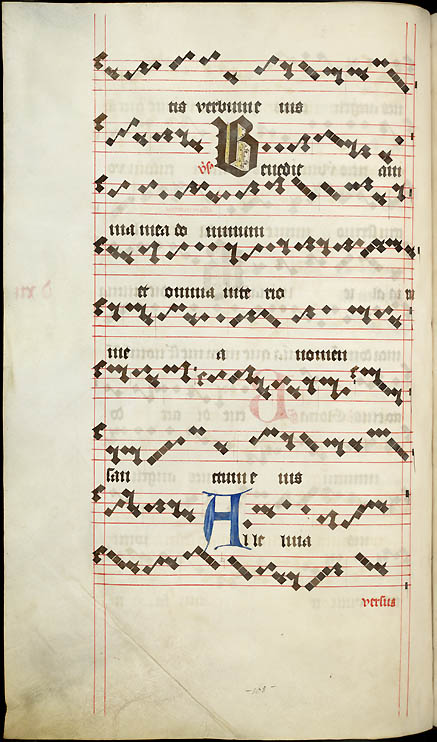 tis verbum e ius
V̄s Benedic ani
ma mea do minum
et omnia inte rio
me a nomen
san ctum e ius
Alle luia
versus